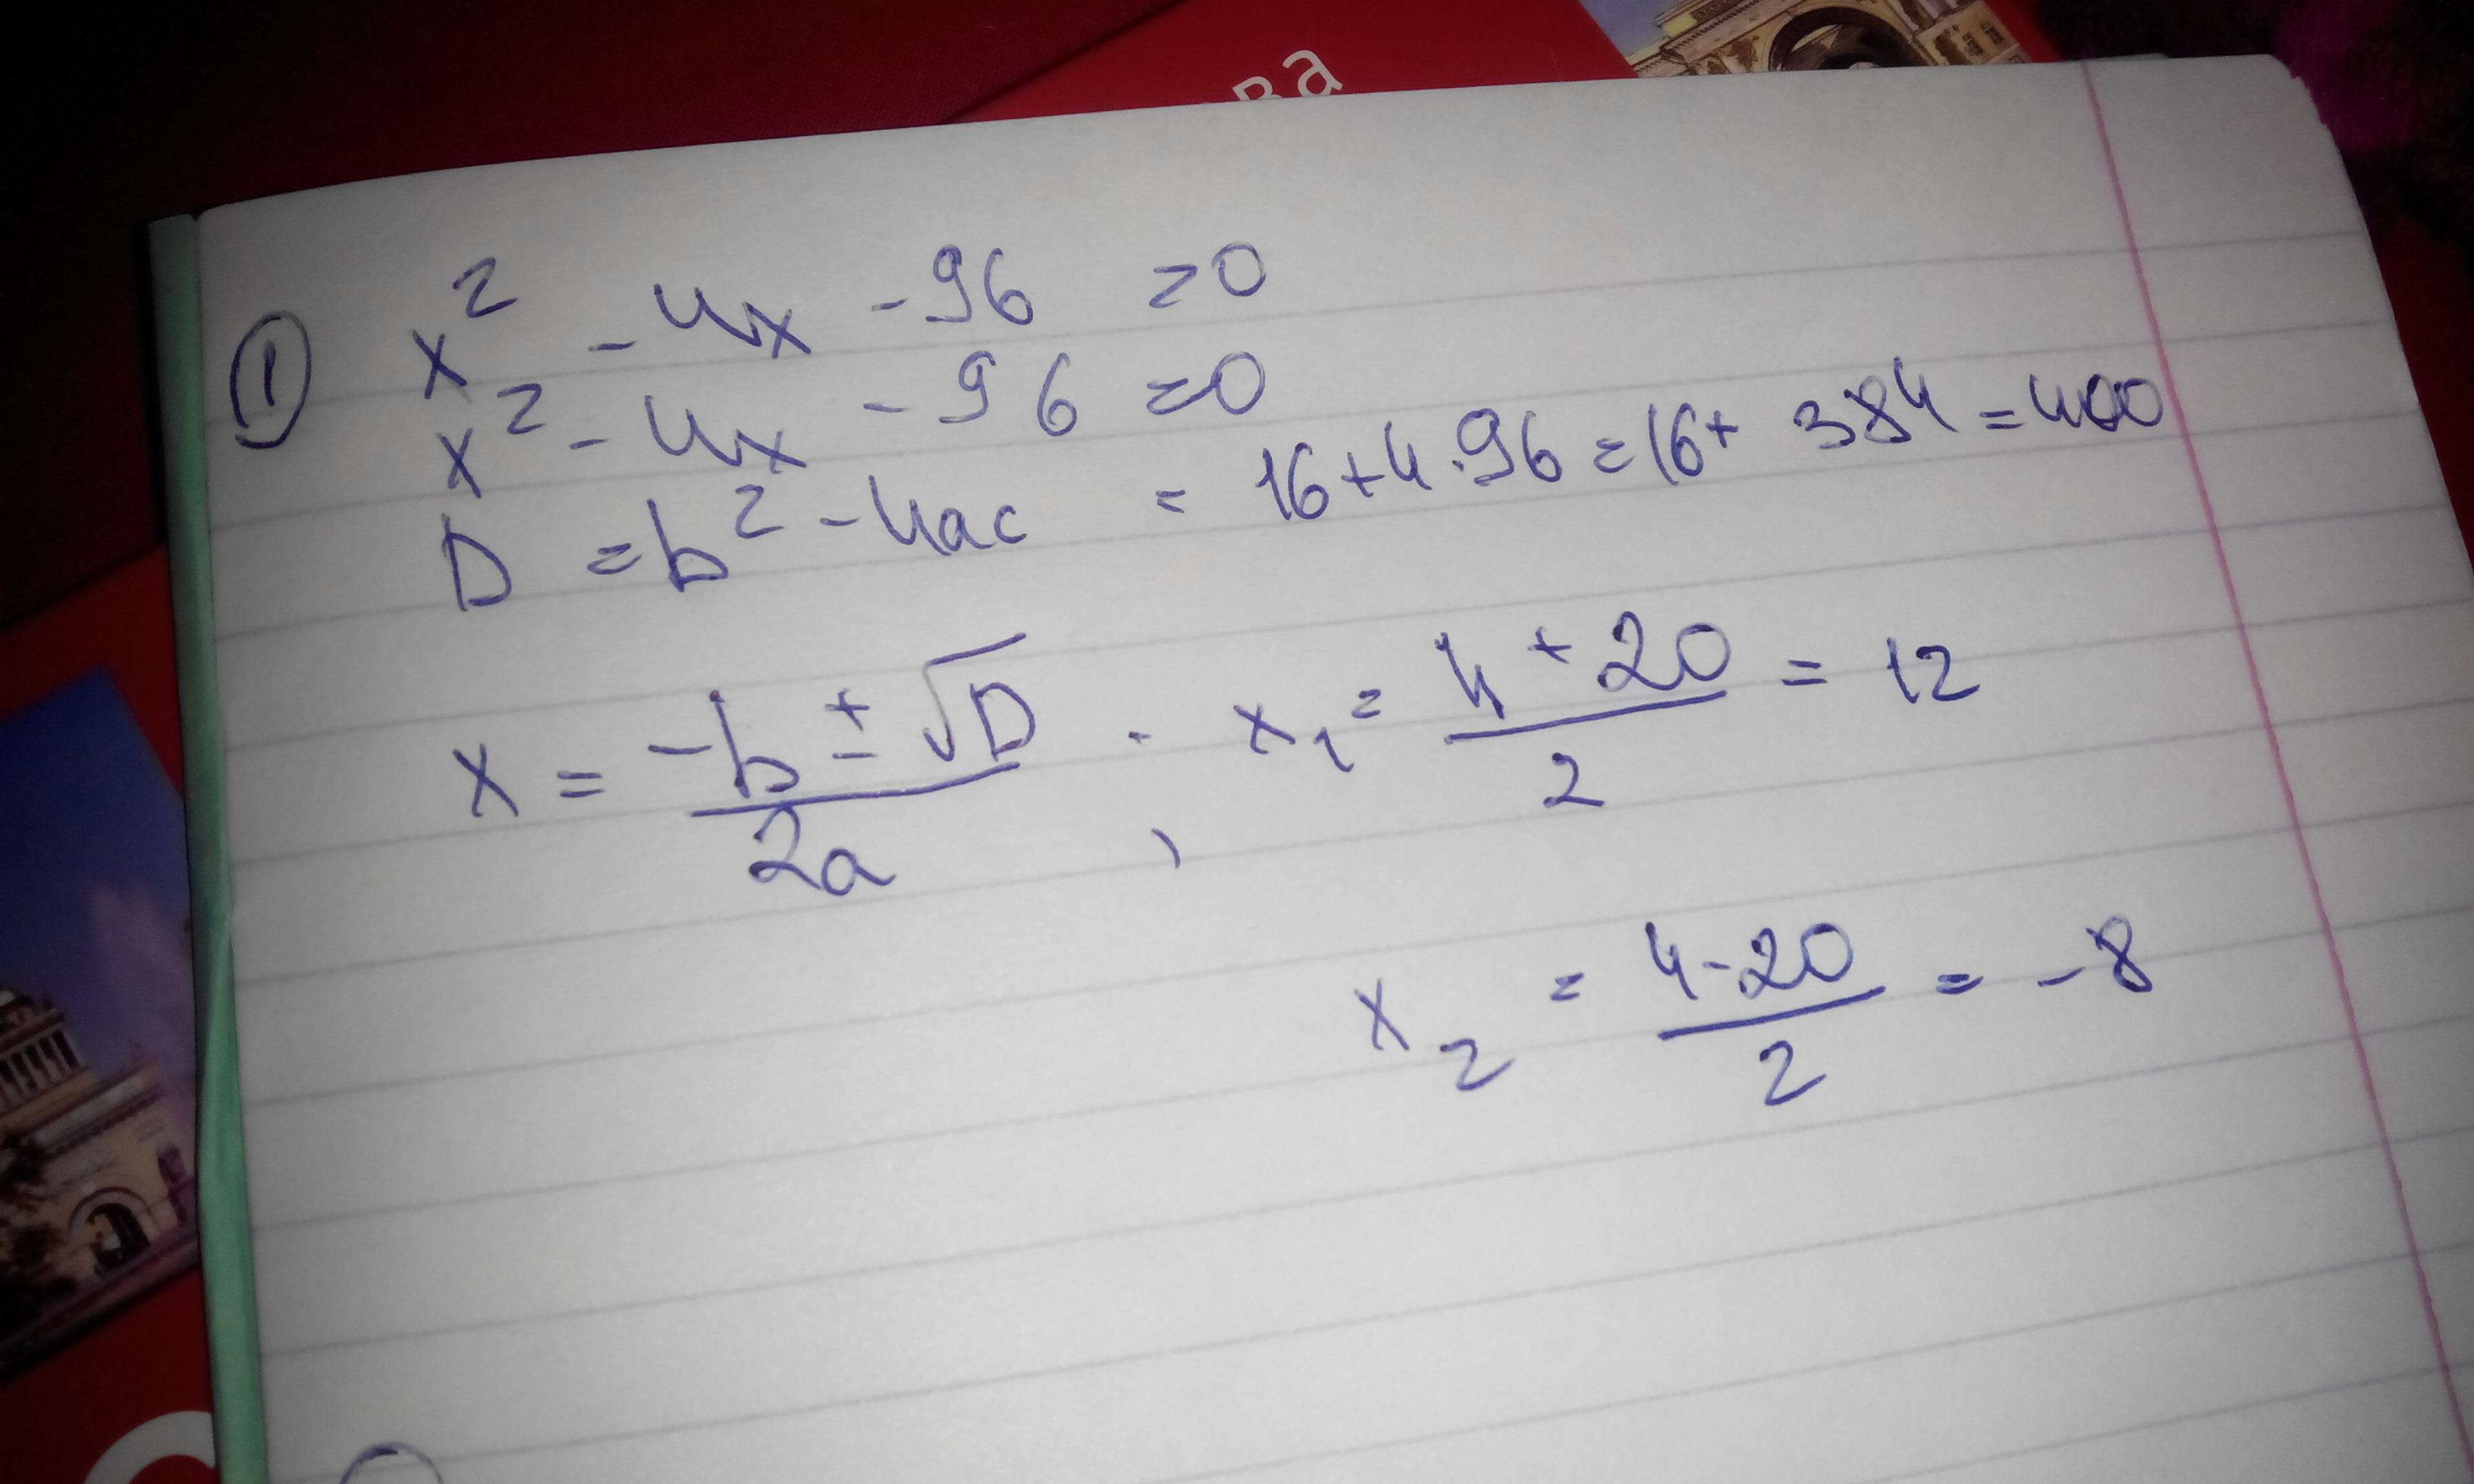 ва
① x² - 4x - 96 = 0
x² - 4x - 96 = 0
D = b² - 4ac = 16 + 4 · 96 = 16 + 384 = 400
x = (-b ± √D) / 2a . x₁ = (4 + 20) / 2 = 12
x₂ = (4 - 20) / 2 = -8